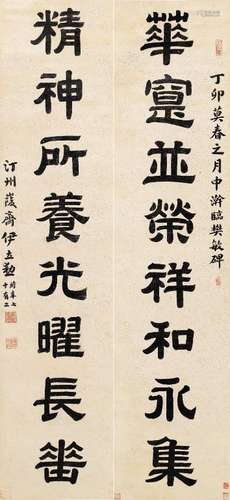 丁卯莫春之月中澣臨樊敏碑
華寔並榮祥和永集
精神所養光曜長
汀州峻齋伊立勳時年七十有二